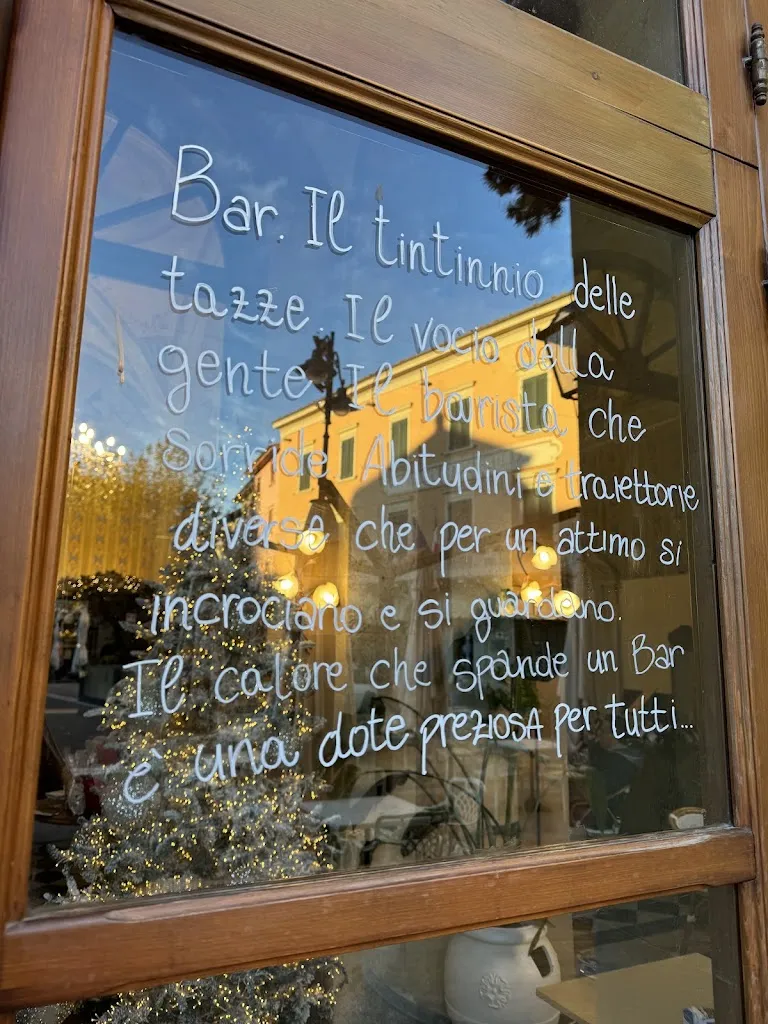 Bar. Il tintinnio delle
tazze. Il vocio della
gente. Il barista che
sorride. Abitudini e traiettorie
diverse che per un attimo si
incrociano e si guardano.
Il calore che spande un Bar
è una dote preziosa per tutti...